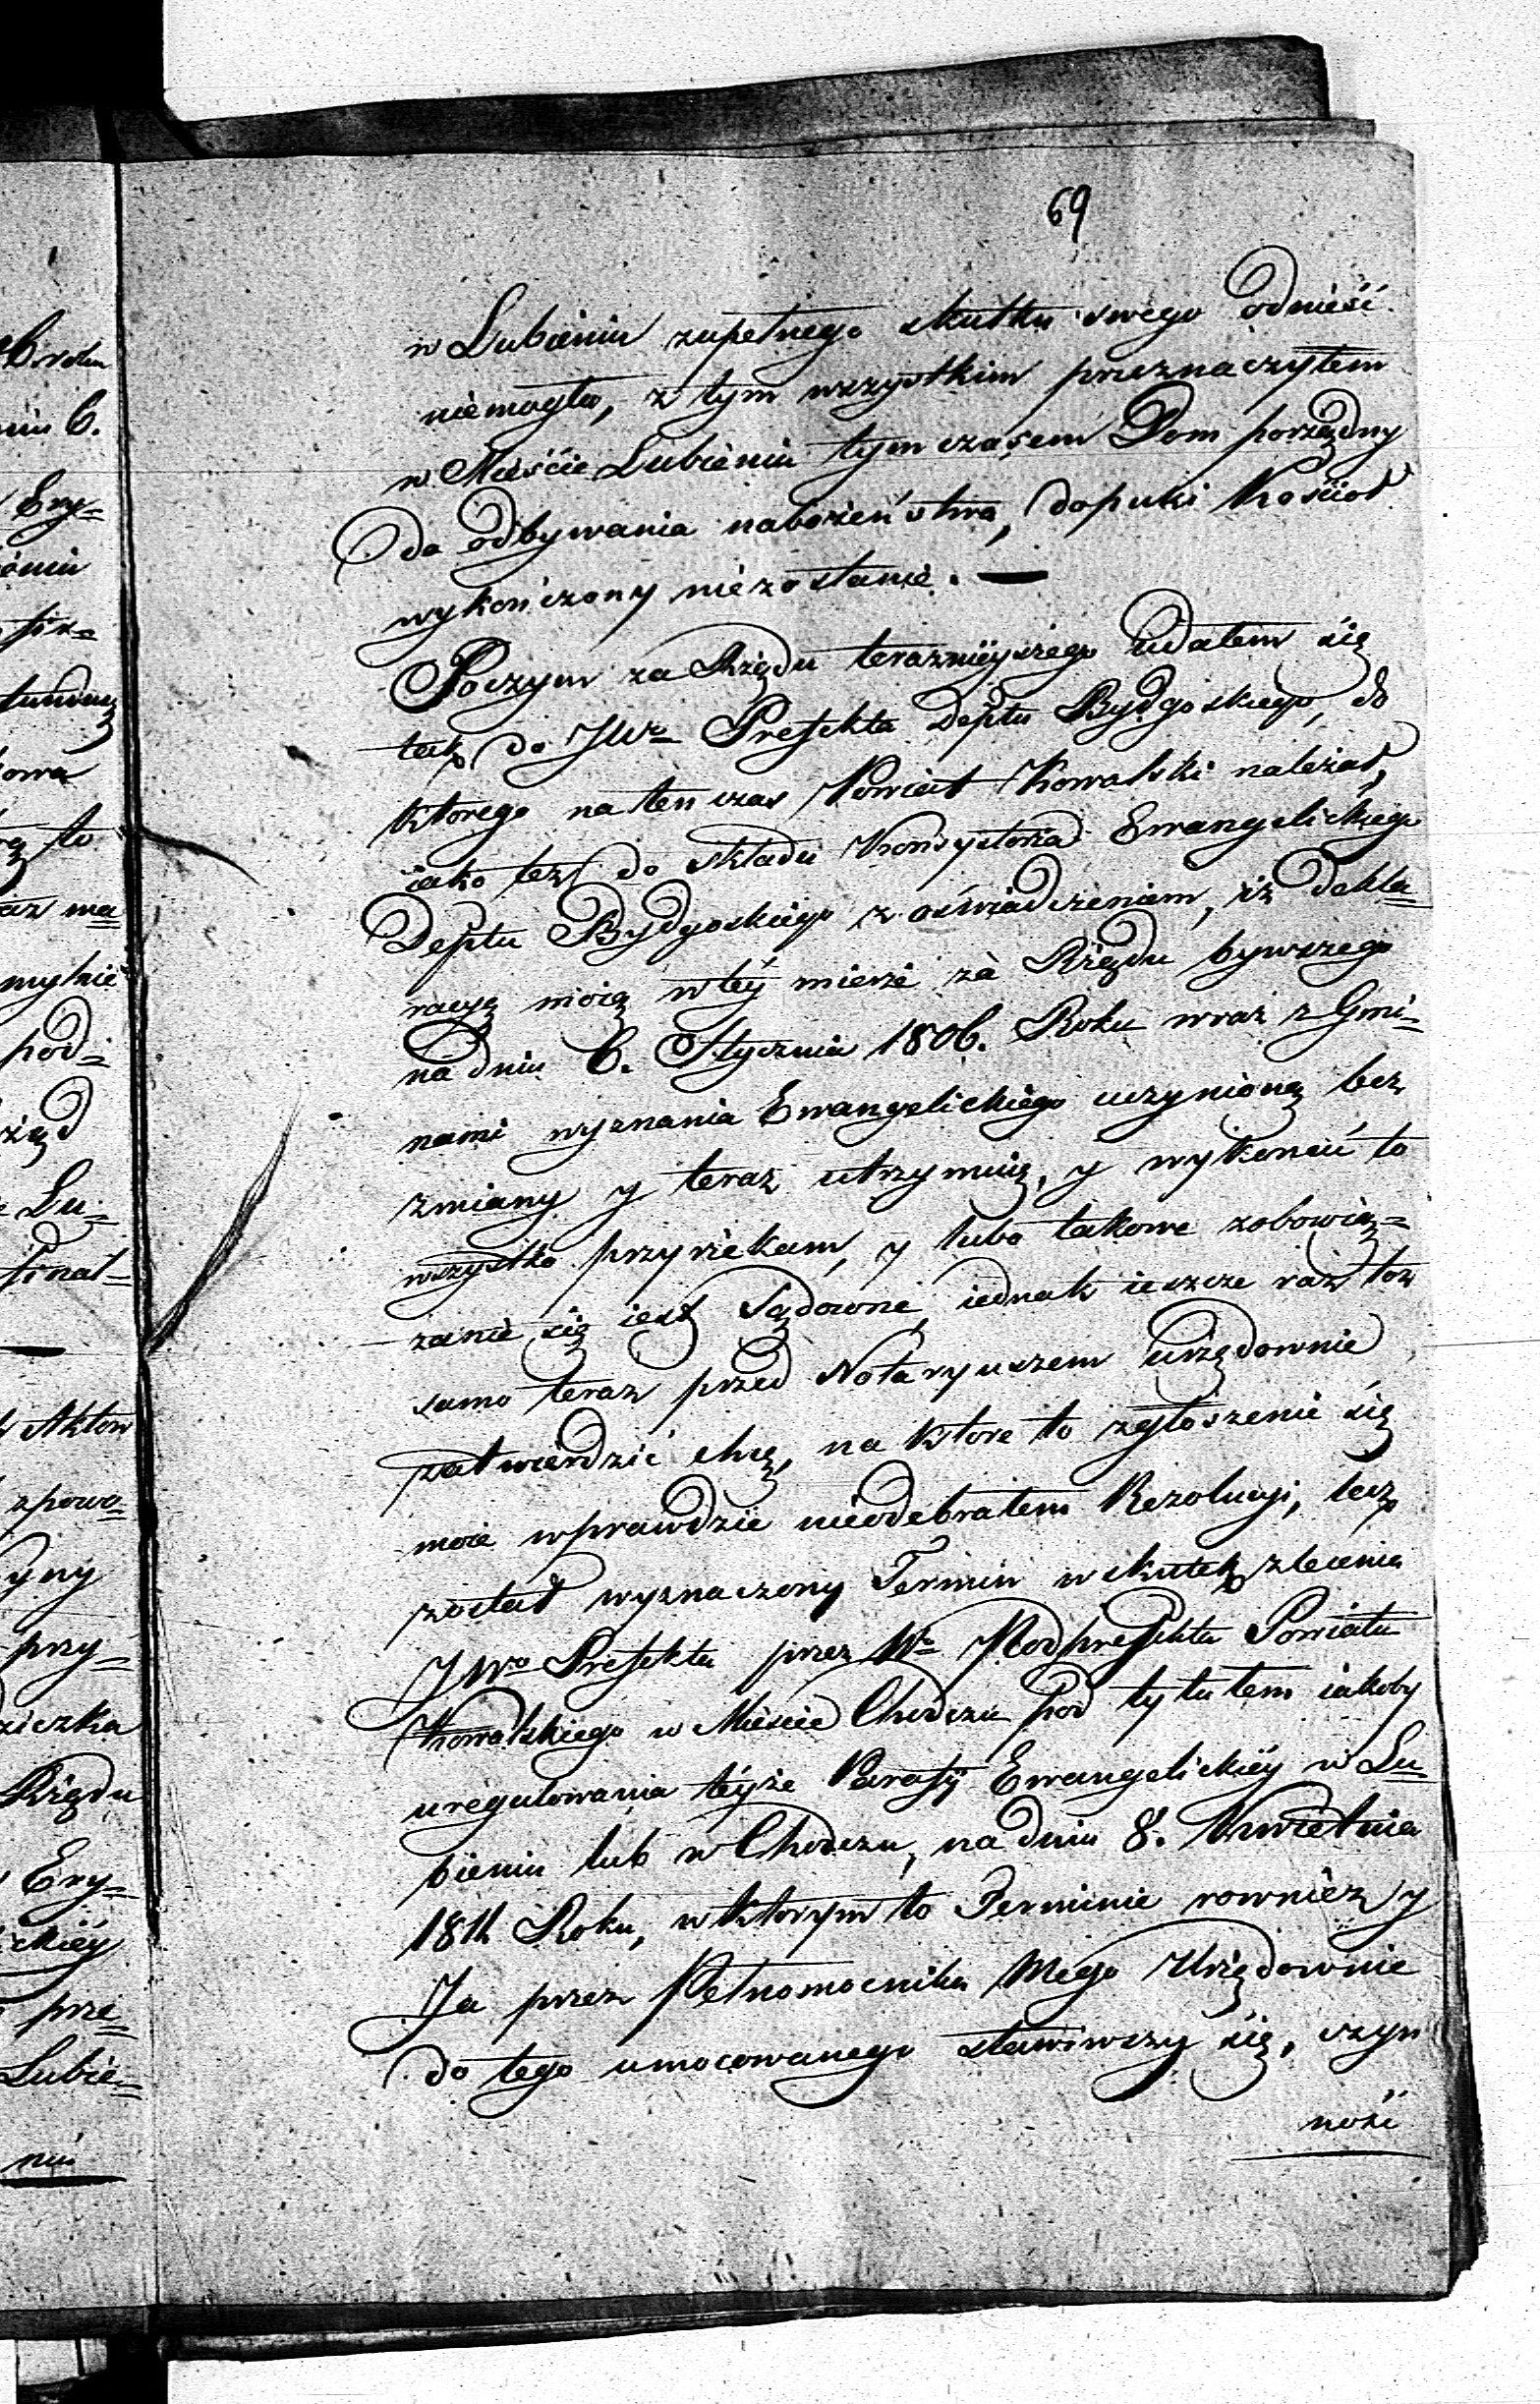 69
w Lubieniu zupełnego skutku swego odnieść
niemogła, z tym wszystkim przeznaczyłem
w Mieście Lubieniu tym czasem Dom porządny
do odbywania nabożeństwa, dopuki Kościoł
wykończony niezostanie. —
Poczym za Rządu teraznieyszego udałem się
tak do JWo Prefekta Deptu Bydgoskiego, do
ktorego na ten czas Powiat Kowalski należał,
iako też do składu Konsystorza Ewangelickiego
Deptu Bydgoskiego z oświadczeniem, iż dekla=
racyą moią w téy mierze za Rządu bywszego
na dniu 6. Stycznia 1806. Roku wraz z Gmi=
nami wyznania Ewangelickiego uczynioną bez
zmiany y teraz utrzymuię, y wykonać to
wszystko przyrzekam, y lubo takowe zobowią=
zanie się iest Sądowne, iednak ieszcze raz toż
samo teraz przed Notaryuszem urzędownie
zatwierdzić chcę, na ktore to zgłoszenie się
moie wprawdzie nieodebrałem Rezolucyi, lecz
został wyznaczony Termin w skutek zlecenia
JWo Prefekta przez Wo Podprefekta Powiatu
Kowalskiego w Mieście Chodczu pod tytułem iakoby
uregulowania téyże Parafÿ Ewangelickiéy w Lu=
bieniu lub w Chodczu, na dniu 8. Kwietnia
1811 Roku, w ktorym to Terminie rownież y
Ja przez Pełnomocnika Mego Urzędownie
do tego umocowanego stawiwszy się, czyn
ność
6.
Ery=
to
ma
pod=
Lu=
Aktow
przy=
Rządu
Ery=
ckiéy
prze=
Lubie=
niu